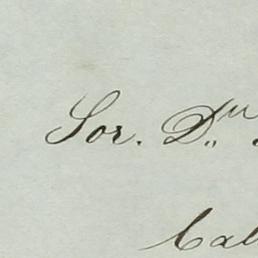 Sor. Dn.
Cal